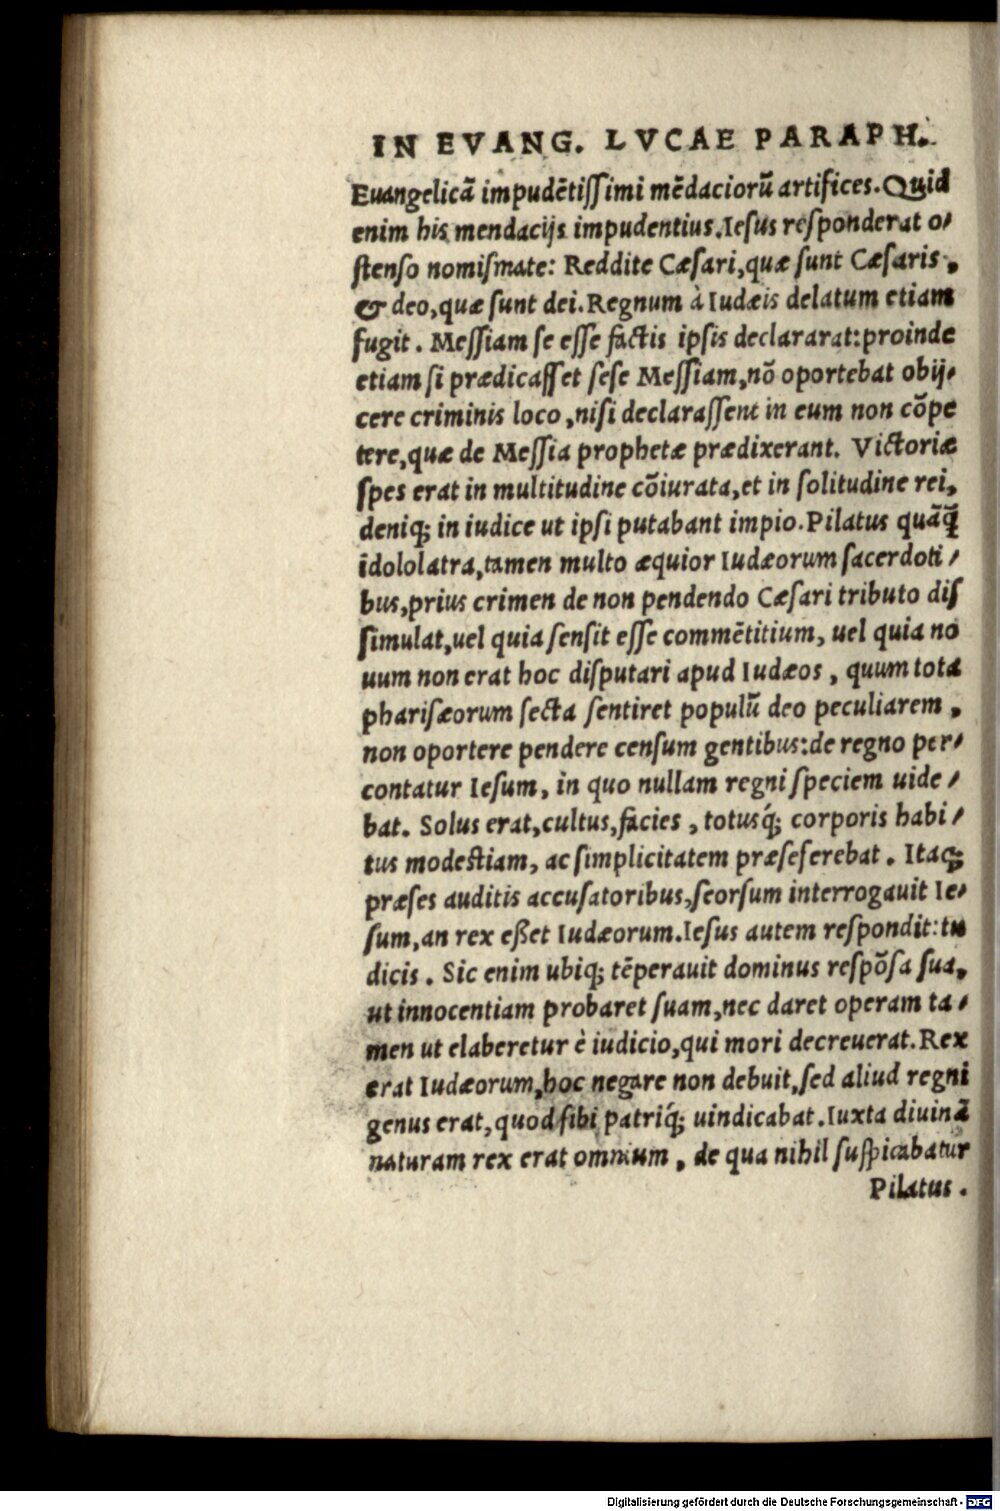 IN EVANG. LVCAE PARAPH.
Euangelicā impudētiſſimi mēdaciorū artifices. Quid
enim his mendacijs impudentius. Ieſus reſponderat o⸗
ſtenſo nomiſmate: Reddite Cæſari, quæ ſunt Cæſaris,
& deo, quæ ſunt dei. Regnum à Iudæis delatum etiam
fugit. Meſſiam ſe eſſe factis ipſis declararat: proinde
etiam ſi prædicaſſet ſeſe Meſſiam, nō oportebat obij⸗
cere criminis loco, niſi declaraſſent in eum non cōpe
tere, quæ de Meſſia prophetæ prædixerant. Victoriæ
ſpes erat in multitudine cōiurata, et in ſolitudine rei,
deniq; in iudice ut ipſi putabant impio. Pilatus quāq̄
idololatra, tamen multo æquior Iudæorum ſacerdoti⸗
bus, prius crimen de non pendendo Cæſari tributo diſ
ſimulat, uel quia ſenſit eſſe commētitium, uel quia no
uum non erat hoc diſputari apud Iudæos, quum tota
phariſæorum ſecta ſentiret populū deo peculiarem,
non oportere pendere cenſum gentibus: de regno per⸗
contatur Ieſum, in quo nullam regni ſpeciem uide⸗
bat. Solus erat, cultus, facies, totusq́; corporis habi⸗
tus modeſtiam, ac ſimplicitatem præſeferebat. Itaq;
præſes auditis accuſatoribus, ſeorſum interrogauit Ie⸗
ſum, an rex eßet Iudæorum. Ieſus autem reſpondit: tu
dicis. Sic enim ubiq; tēperauit dominus reſpōſa ſua,
ut innocentiam probaret ſuam, nec daret operam ta⸗
men ut elaberetur è iudicio, qui mori decreuerat. Rex
erat Iudæorum, hoc negare non debuit, ſed aliud regni
genus erat, quod ſibi patriq́; uindicabat. Iuxta diuinā
naturam rex erat omnium, de qua nihil ſuſpicabatur
Pilatus.
Digitalisierung gefördert durch die Deutsche Forschungsgemeinschaft - DFG